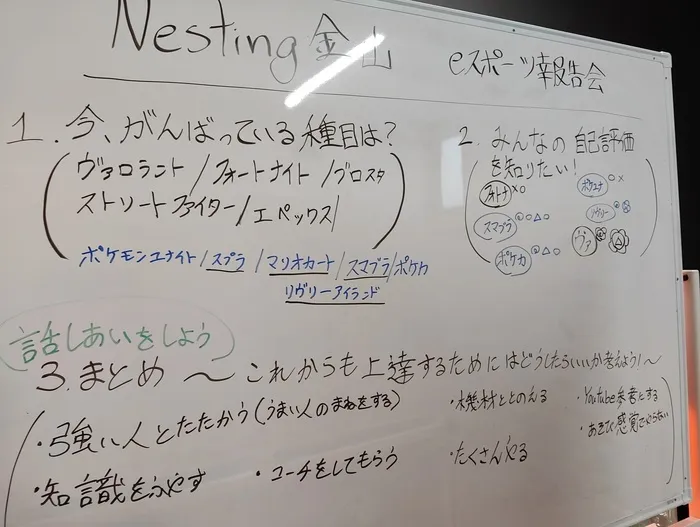 Nesting金山
eスポーツ報告会
1. 今、がんばっている種目は?
ヴァロラント/フォートナイト/ブロスタ
ストリートファイター/エペックス/
ポケモンユナイト/スプラ/マリオカート/スマブラ/ポケカ
リヴリーアイランド
2. みんなの自己評価
を知りたい!
フォトナ×○
スマブラ◎○△○
ポケカ◎○△○
ポケユナ○×
リヴリー
ヴァ
話しあいをしよう
3. まとめ 〜これからも上達するためにはどうしたらいいか考えよう!〜
・強い人とたたかう(うまい人のまねをする)
・機材ととのえる
・Youtube参考にする
・あそび感覚でやらない
・知識をふやす
・コーチをしてもらう
・たくさんやる